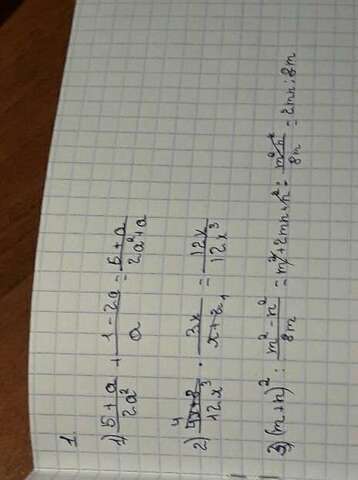 1.
1) (5+a)/(2a²) + (1-2a)/a = (5+a)/(2a²+a)
2) · 3x/ = 12x/12x³
3) (m+n)² : (m²-n²)/(8m) = m²+2mn+n² : (m²-n²)/(8m) = 2mn:8m